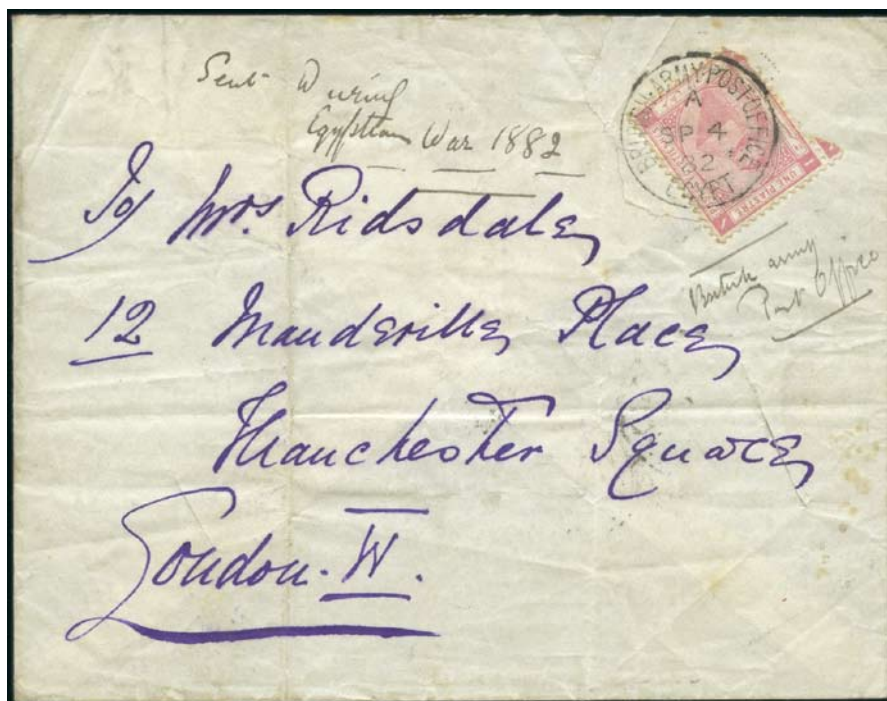 Sent During
Egyptian War 1882
BRITISH·ARMY·POST·OFFICE
A
SP 4
82
EGYPT
ONE PIASTRE
To/ Mrs. Ridsdale,
British army
Post Office
12 Mandeville Place,
Manchester Square,
London. W.